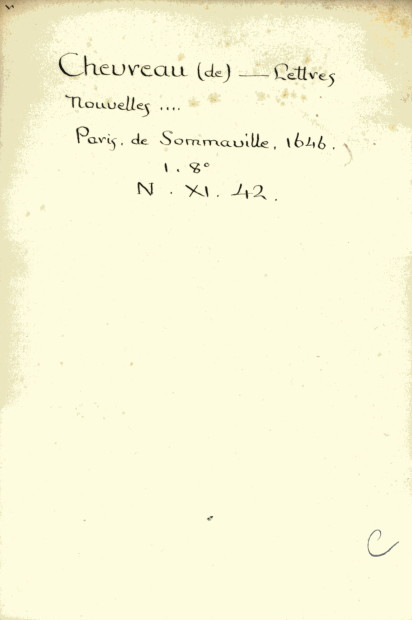 Chevreau (de) — Lettres
Nouvelles ....
Paris. de Sommaville. 1646.
1. 8°
N. XI. 42.
C